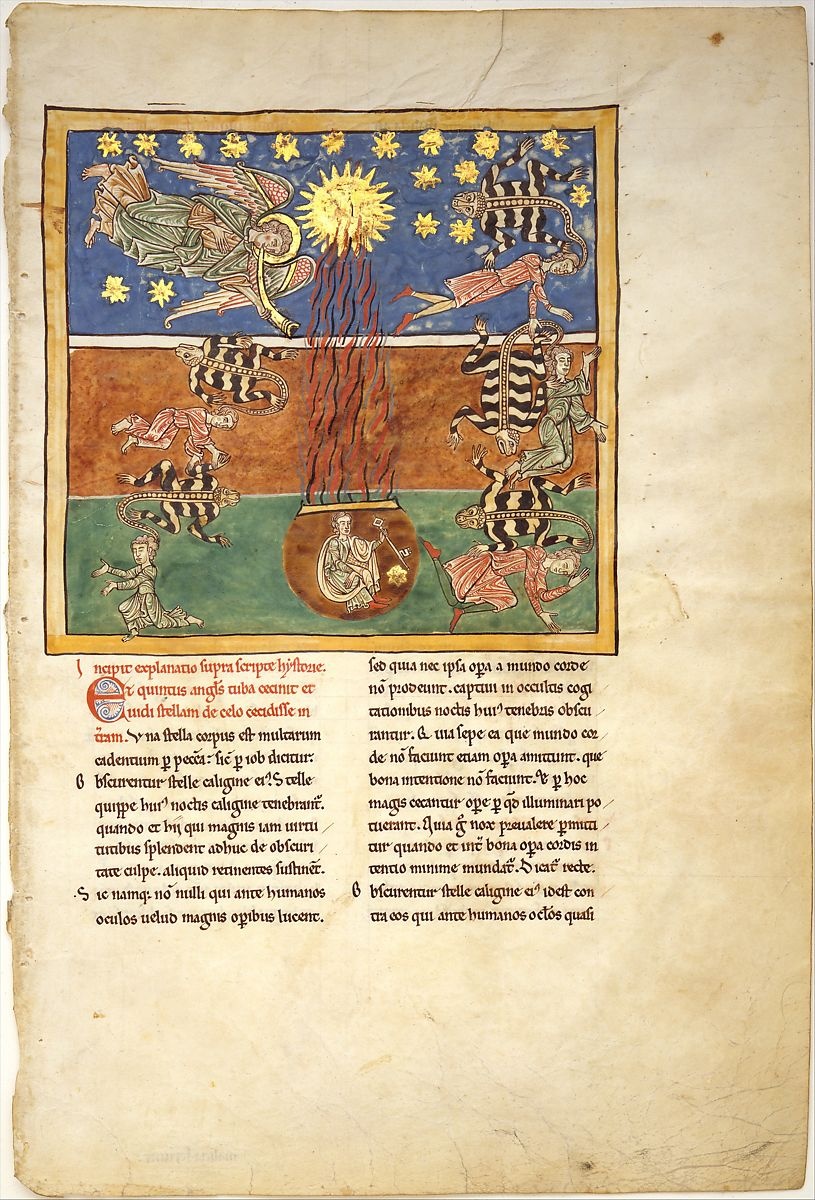 Incipit explanatio supra scripte hystorie.
Et quintus angl's tuba cecinit et
uidi stellam de celo cecidisse in
t̄ram. Vna stella corpus est multarum
cadentium p̱ pecc̄a: sic̄ p̱ iob dicitur.
Obscurentur stelle caligine ei'. Stelle
quippe hui' noctis caligine tenebrant̄.
quando et hij qui magnis iam uirtu
tutibus splendent adhuc de obscuri
tate culpe. aliquid retinentes sustinēt.
Sic namq; nō nulli qui ante humanos
oculos uelud magnis op̱ibus lucent.
sed quia nec ipsa op̱a a mundo corde
nō prodeunt. captiui in occultis cogi
tationibus noctis hui' tenebris obscu
rantur. Qui sepe ea que mundo cor
de nō faciunt etiam op̱a amittunt. que
bona intentione nō faciunt. Et p̱ hoc
magis cecantur ope p̱ qd̄ illuminari po
tuerant. Quia g̊ nox preualere p̱mitti
tur quando et int̄ bona op̱a cordis in
tentio minime mundat̄. Dicat̄ recte.
Obscurentur stelle caligine ei' idest con
tra eos qui ante humanos oc̄los quasi